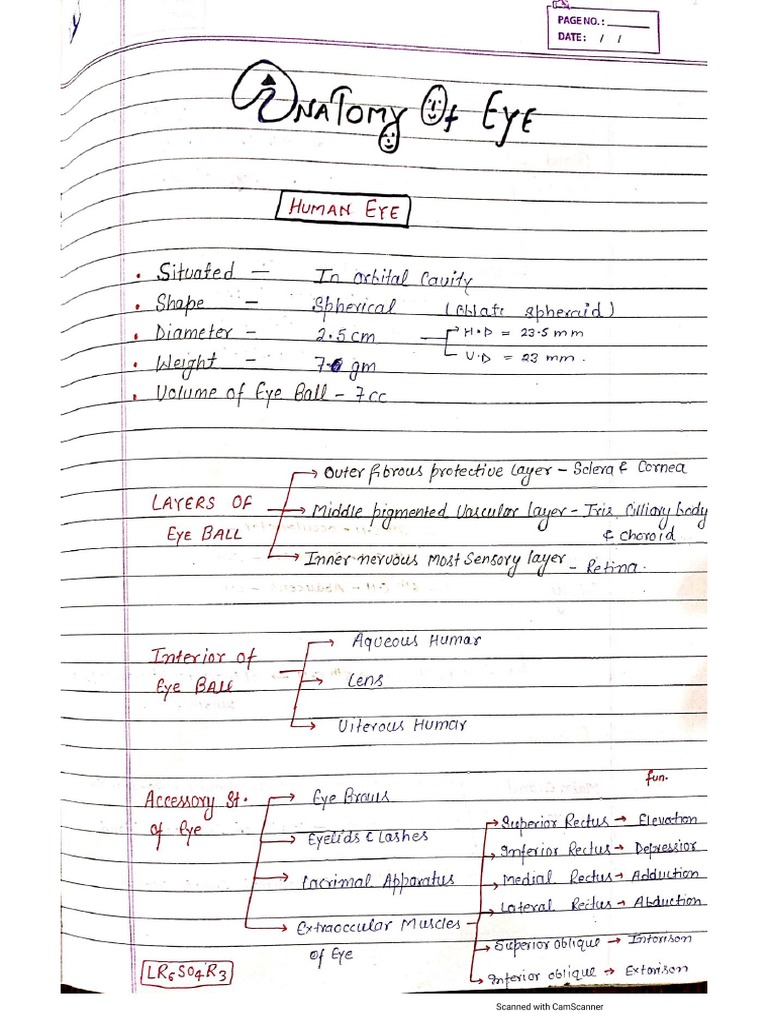 PAGE NO.:
DATE: / /
Anatomy Of Eye
HUMAN EYE
• Situated - In orbital Cavity
• Shape - Spherical (Oblate spheroid)
• Diameter - 2.5cm H.D = 23.5 mm
V.D = 23 mm.
• Weight - 7 gm
• Volume of Eye Ball - 7cc
Outer fibrous protective layer - Sclera & Cornea
LAYERS OF
Middle pigmented Vascular layer - Iris, Cilliary body
EYE BALL
& Choroid
Inner nervous most Sensory layer - Retina.
Aqueous Humar
Interior of
Eye BALL
Lens
Viterous Humar
fun.
Accessory St.
of Eye
Eye Brows
Eyelids & Lashes
Lacrimal Apparatus
Extraoccular Muscles
of Eye
Superior Rectus → Elevation
Inferior Rectus → Depression
Medial Rectus → Adduction
Lateral Rectus → Abduction
Superior oblique → Intorison
Inferior oblique → Extorison
LR6SO4R3
Scanned with CamScanner